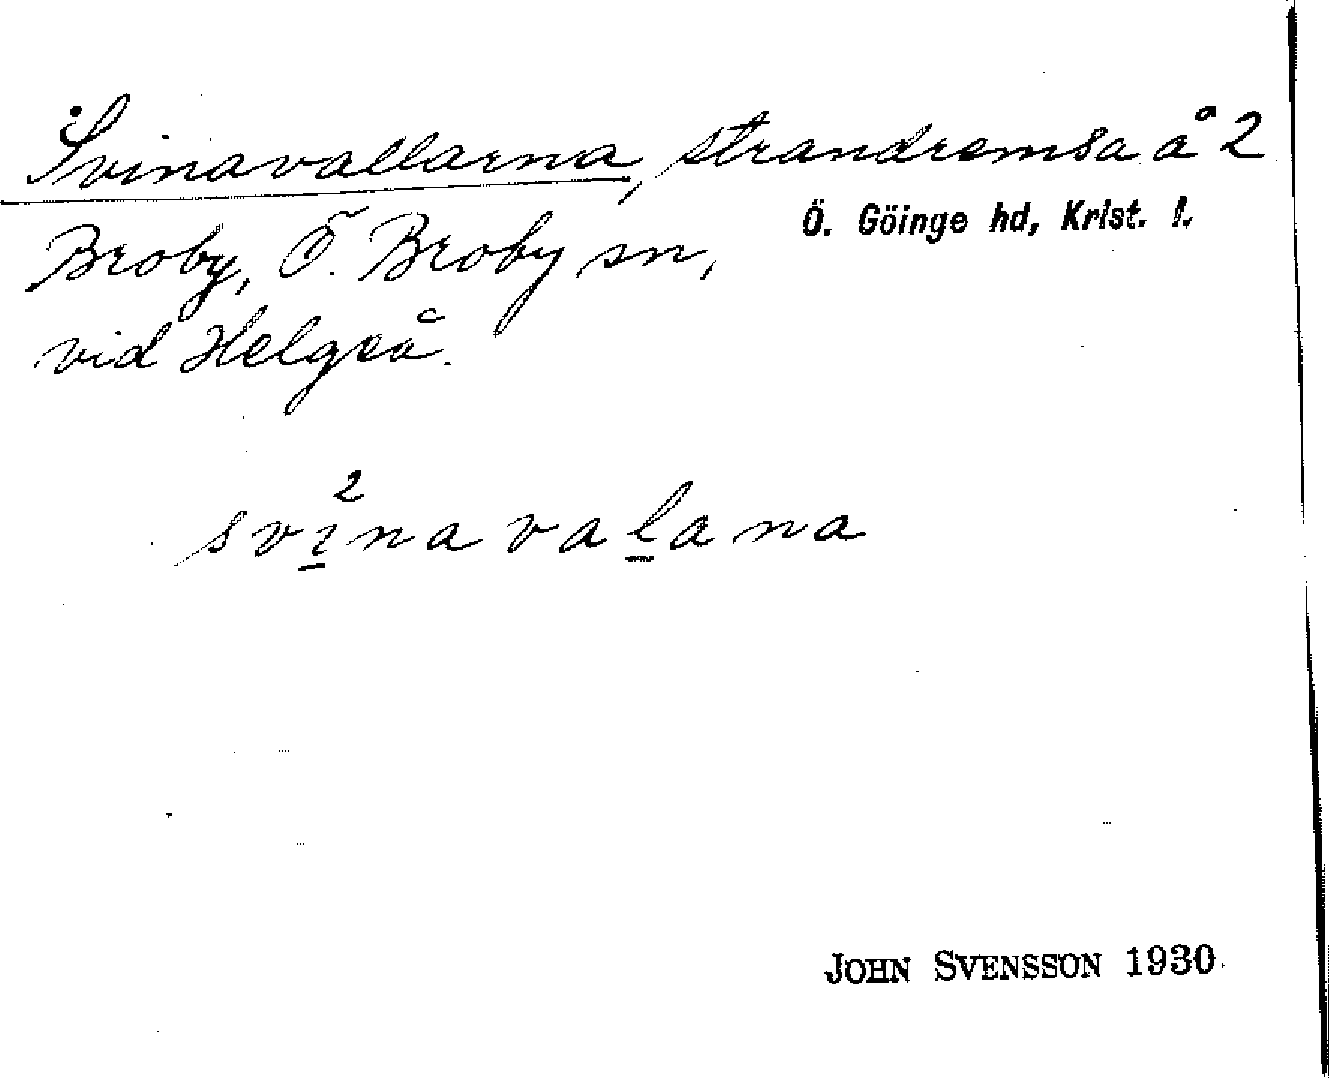 Svinavallarna, strandremsa å 2
Ö. Göinge hd, Krist. l.
Broby, Ö. Broby sn,
vid Helgeå.
2
svinavalana
JOHN SVENSSON 1930